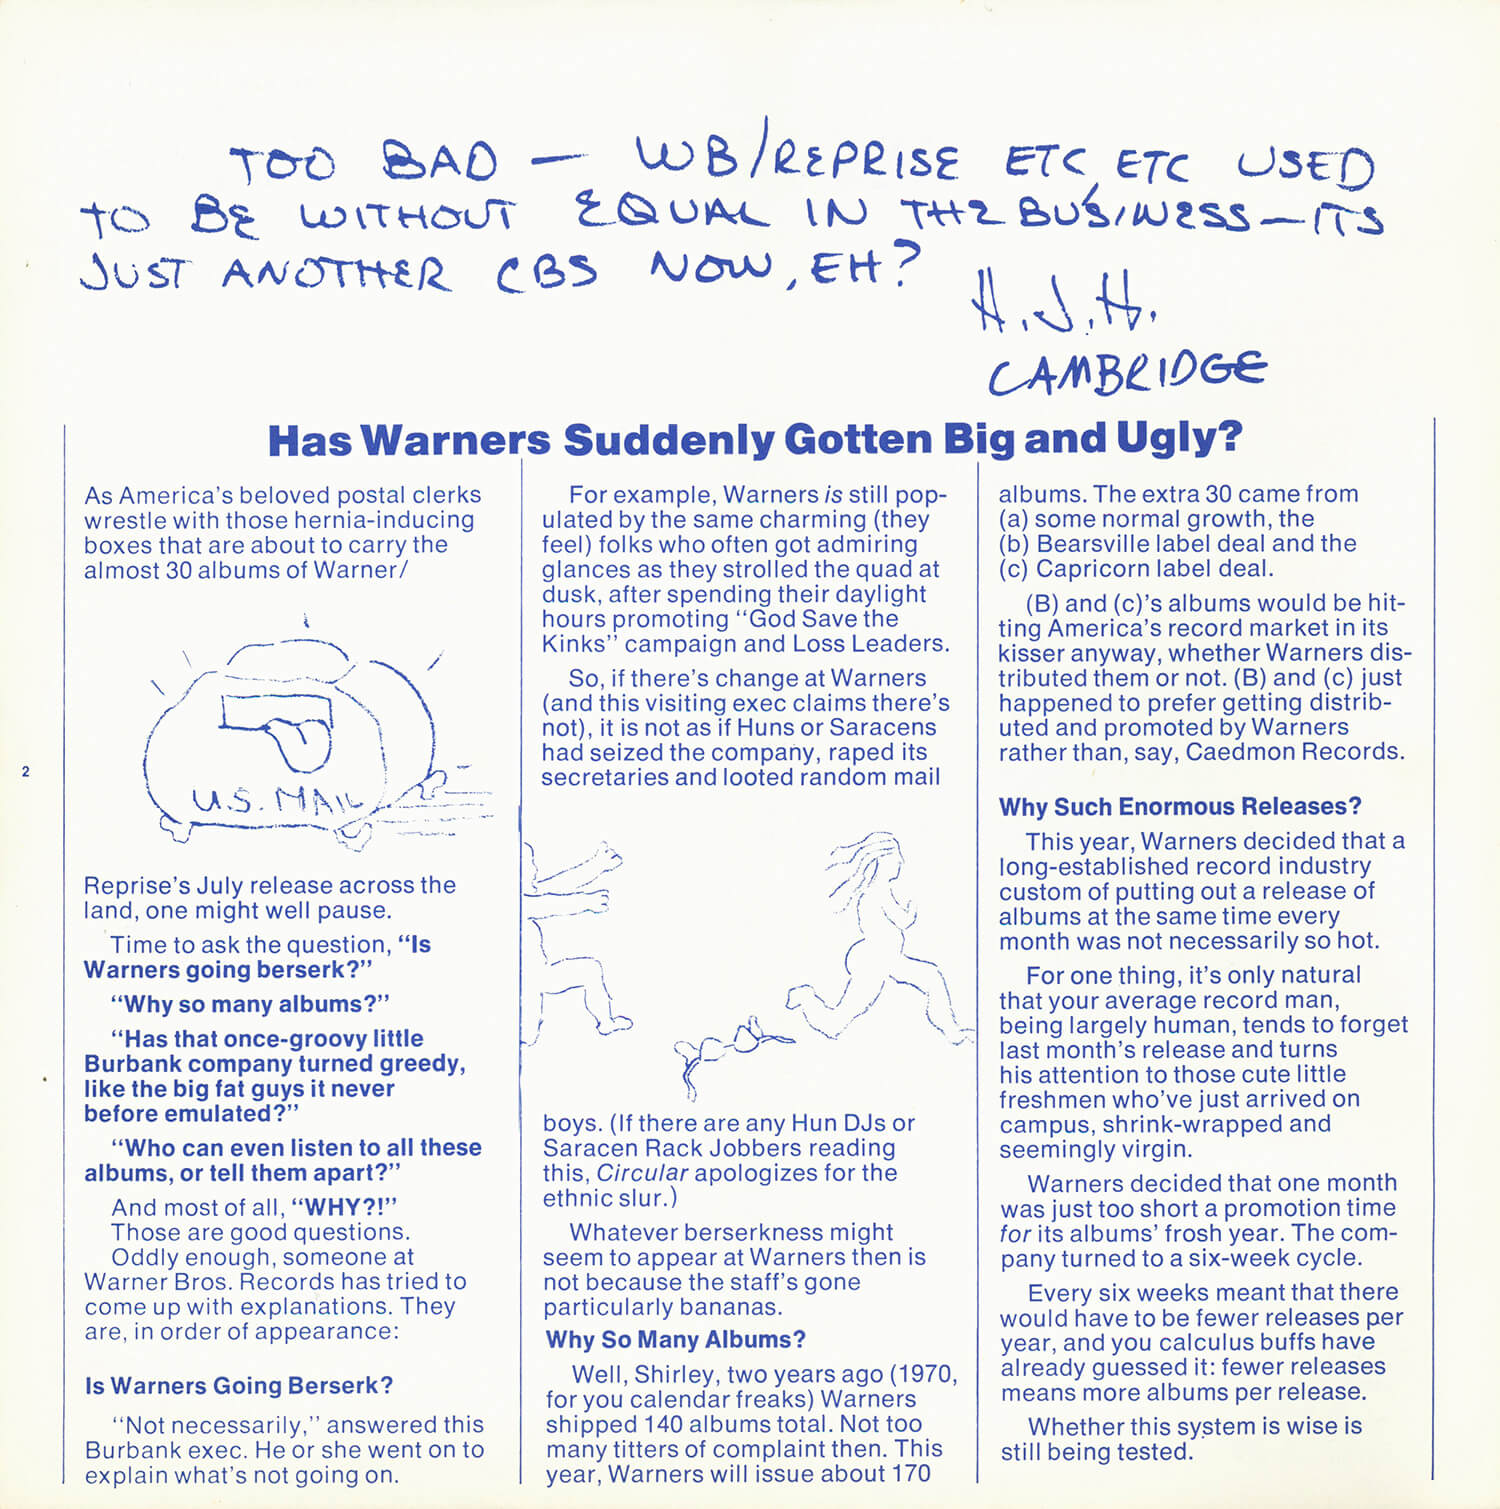 TOO BAD — WB/REPRISE ETC, ETC USED
TO BE WITHOUT EQUAL IN THE BUSINESS — IT'S
JUST ANOTHER CBS NOW, EH?
H.J.H.
CAMBRIDGE
Has Warners Suddenly Gotten Big and Ugly?
As America's beloved postal clerks
wrestle with those hernia-inducing
boxes that are about to carry the
almost 30 albums of Warner/
U.S. MAIL
Reprise's July release across the
land, one might well pause.
Time to ask the question, "Is
Warners going berserk?"
"Why so many albums?"
"Has that once-groovy little
Burbank company turned greedy,
like the big fat guys it never
before emulated?"
"Who can even listen to all these
albums, or tell them apart?"
And most of all, "WHY?!"
Those are good questions.
Oddly enough, someone at
Warner Bros. Records has tried to
come up with explanations. They
are, in order of appearance:
Is Warners Going Berserk?
"Not necessarily," answered this
Burbank exec. He or she went on to
explain what's not going on.
For example, Warners is still pop-
ulated by the same charming (they
feel) folks who often got admiring
glances as they strolled the quad at
dusk, after spending their daylight
hours promoting "God Save the
Kinks" campaign and Loss Leaders.
So, if there's change at Warners
(and this visiting exec claims there's
not), it is not as if Huns or Saracens
had seized the company, raped its
secretaries and looted random mail
boys. (If there are any Hun DJs or
Saracen Rack Jobbers reading
this, Circular apologizes for the
ethnic slur.)
Whatever berserkness might
seem to appear at Warners then is
not because the staff's gone
particularly bananas.
Why So Many Albums?
Well, Shirley, two years ago (1970,
for you calendar freaks) Warners
shipped 140 albums total. Not too
many titters of complaint then. This
year, Warners will issue about 170
albums. The extra 30 came from
(a) some normal growth, the
(b) Bearsville label deal and the
(c) Capricorn label deal.
(B) and (c)'s albums would be hit-
ting America's record market in its
kisser anyway, whether Warners dis-
tributed them or not. (B) and (c) just
happened to prefer getting distrib-
uted and promoted by Warners
rather than, say, Caedmon Records.
Why Such Enormous Releases?
This year, Warners decided that a
long-established record industry
custom of putting out a release of
albums at the same time every
month was not necessarily so hot.
For one thing, it's only natural
that your average record man,
being largely human, tends to forget
last month's release and turns
his attention to those cute little
freshmen who've just arrived on
campus, shrink-wrapped and
seemingly virgin.
Warners decided that one month
was just too short a promotion time
for its albums' frosh year. The com-
pany turned to a six-week cycle.
Every six weeks meant that there
would have to be fewer releases per
year, and you calculus buffs have
already guessed it: fewer releases
means more albums per release.
Whether this system is wise is
still being tested.
2